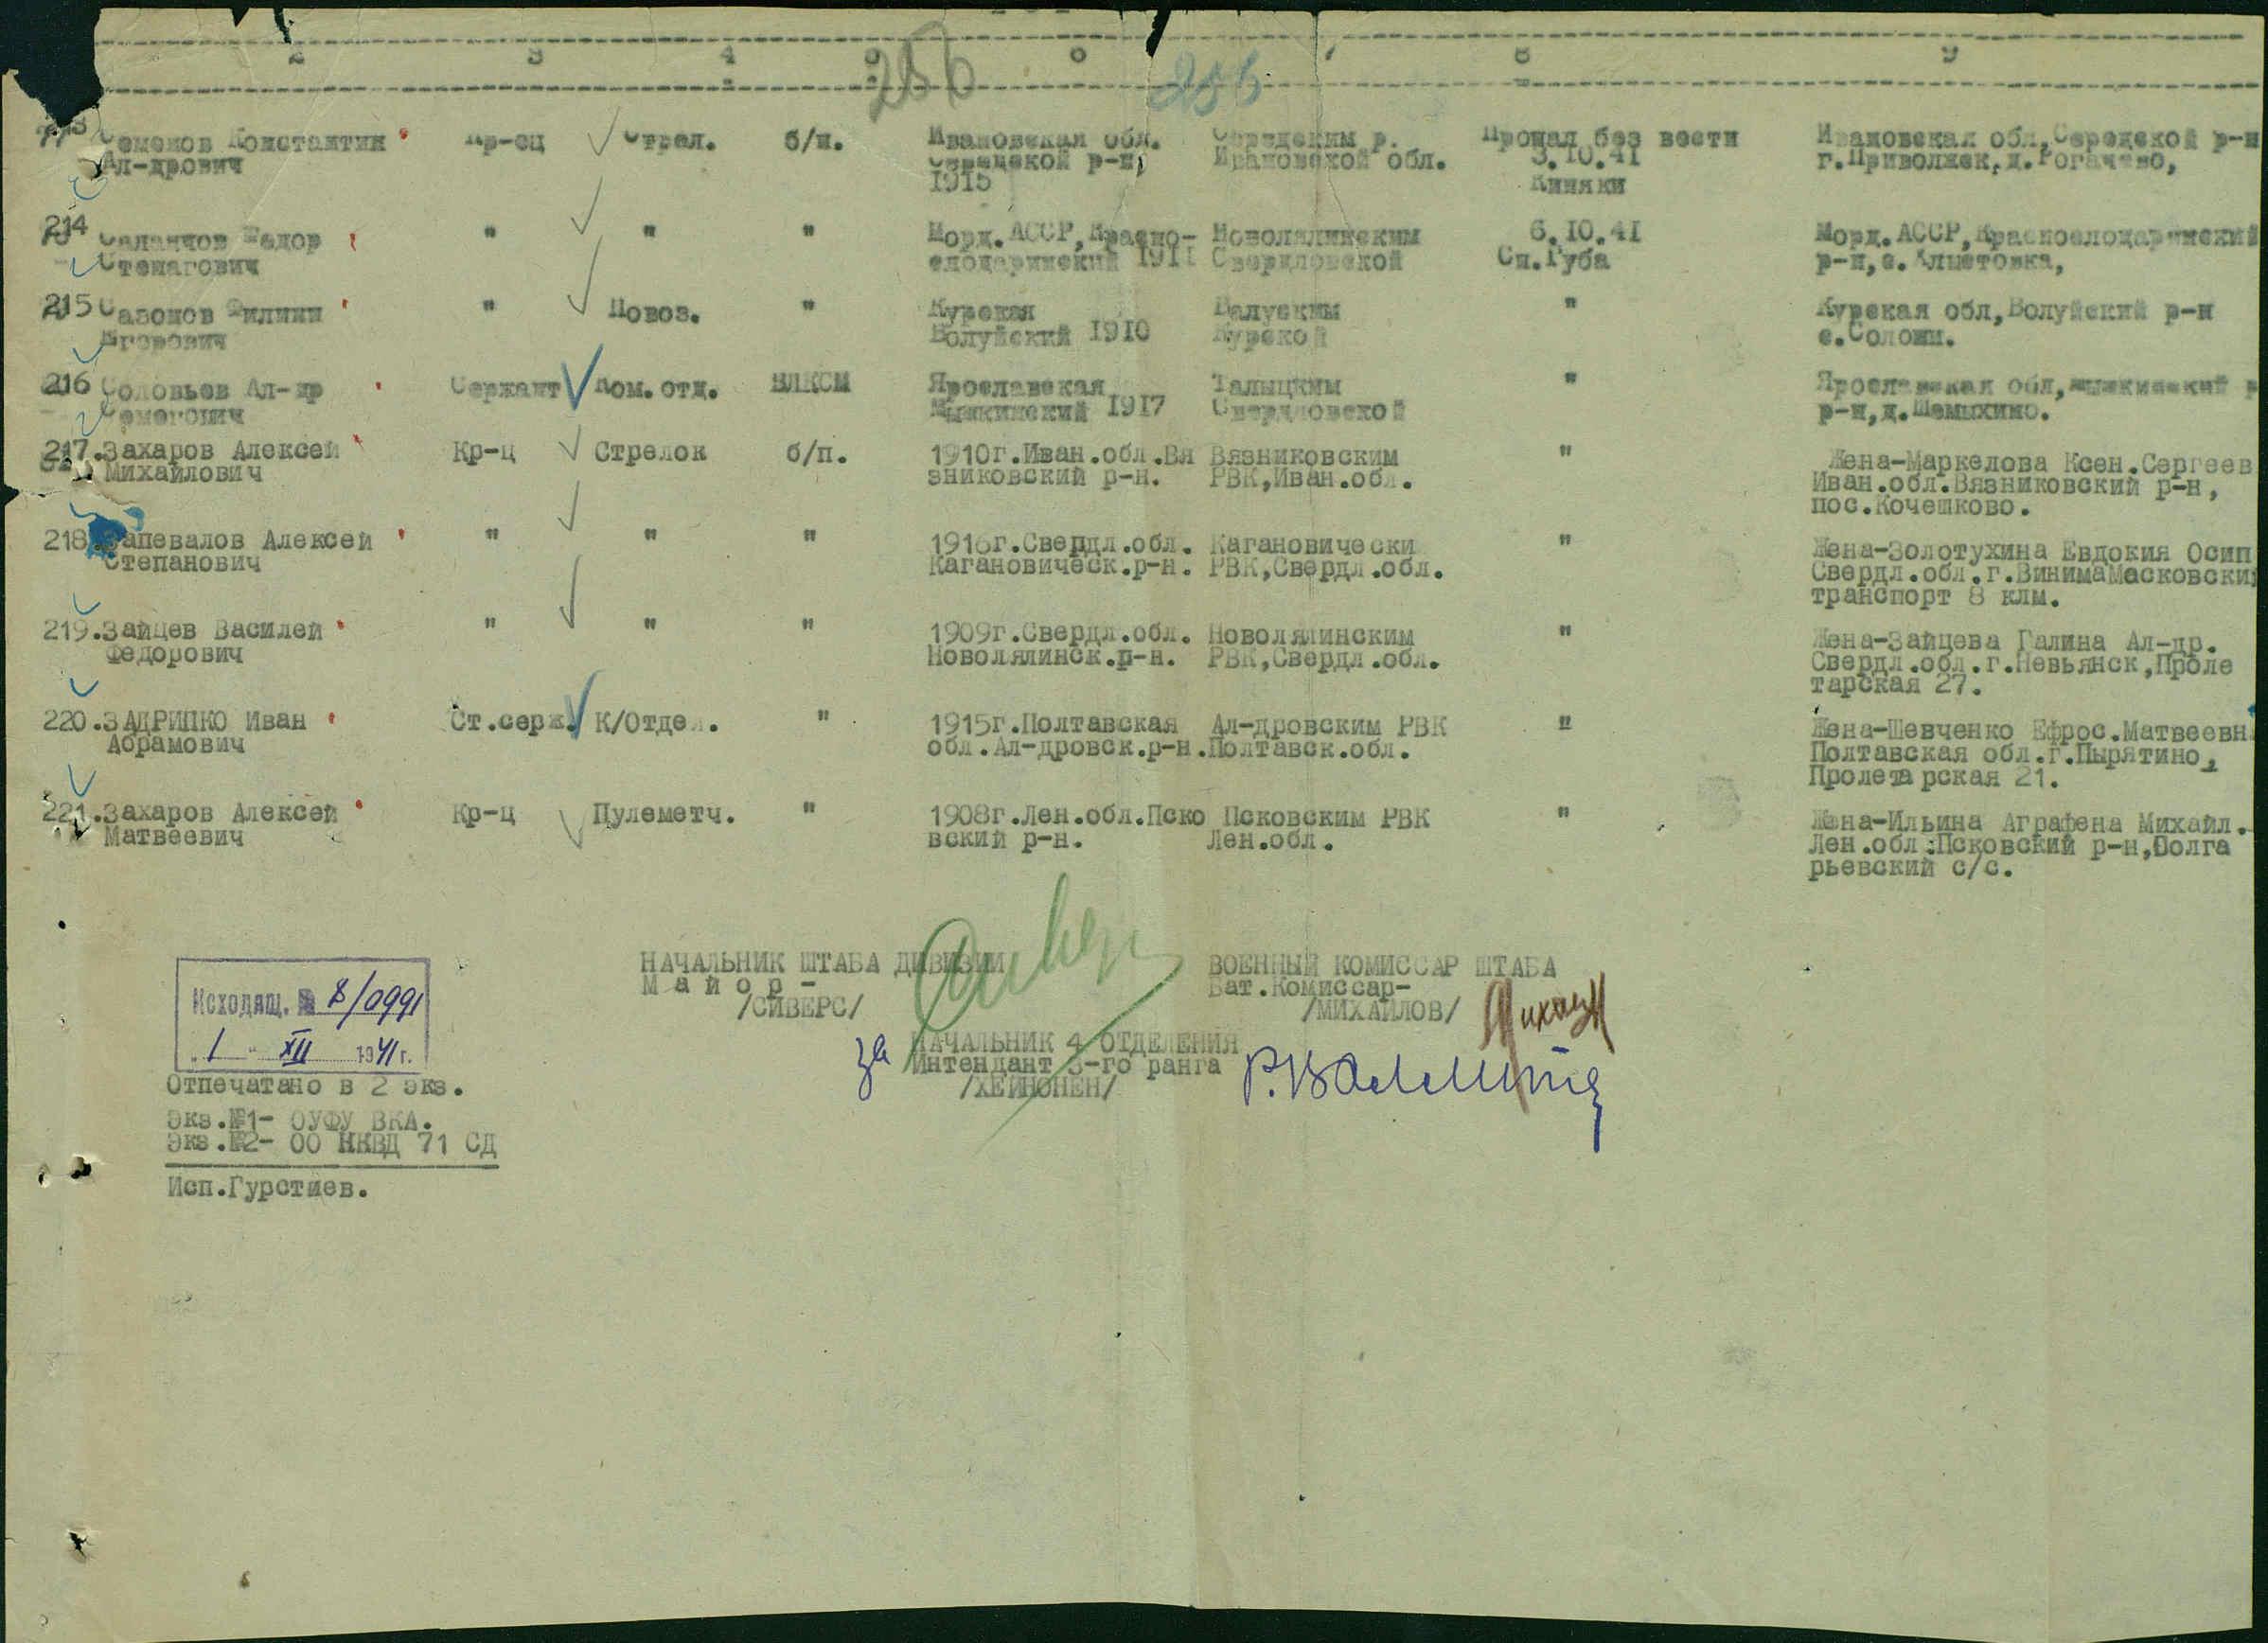 2 3 4 5 6 7 8 9
256 256
Семенов Константин Кр-ец Стрел. б/п. Ивановская обл. Середским р. Пропал без вести Ивановская обл, Середской р-н
Ал-дрович Середской р-н, Ивановской обл. 3.10.41 г.Приволжск, д.Рогачево,
1915 Киняки
214 Федор " " " Морд.АССР, Красно- Новолялинским 6.10.41 Морд.АССР, Краснослодаринский
слодаринский 1911 Свердловской Сп.Губа р-н, с.
215 Сазонов Филипп " Повоз. " Курская Валуским " Курская обл, Волуйский р-н
Егорович Волуйский 1910 Курской с.Солоти.
216 Соловьев Ал-др Сержант Ком.отд. ВЛКСМ Ярославская Талыцким " Ярославская обл, Мышкинский р
Мышкинский 1917 Свердловской р-н, д.Шемыхино.
217.Захаров Алексей Кр-ц Стрелок б/п. 1910г.Иван.обл.Вя Вязниковским " Жена-Маркелова Ксен.Сергеев
Михайлович зниковский р-н. РВК,Иван.обл. Иван.обл.Вязниковский р-н,
пос.Кочешково.
218.Запевалов Алексей " " " 1916г.Свердл.обл. Кагановически " Жена-Золотухина Евдокия Осип
Степанович Кагановическ.р-н. РВК,Свердл.обл. Свердл.обл.г.ВинимаМасковский
транспорт 8 клм.
219.Зайцев Василей " " " 1909г.Свердл.обл. Новолялинским " Жена-Зайцева Галина Ал-др.
Федорович Новолялинск.р-н. РВК,Свердл.обл. Свердл.обл.г.Невьянск,Проле
тарская 27.
220.ЗАДРИПКО Иван Ст.серж. К/Отдел. " 1915г.Полтавская Ал-дровским РВК " Жена-Шевченко Ефрос.Матвеевн
Абрамович обл.Ал-дровск.р-н.Полтавск.обл. Полтавская обл.г.Пырятино,
Пролетарская 21.
221.Захаров Алексей Кр-ц Пулеметч. " 1908г.Лен.обл.Пско Псковским РВК " Жена-Ильина Аграфена Михайл.
Матвеевич вский р-н. Лен.обл. Лен.обл.Псковский р-н,Долга
рьевский с/с.
НАЧАЛЬНИК ШТАБА ДИВИЗИИ ВОЕННЫЙ КОМИССАР ШТАБА
Майор- Бат.Комиссар-
/СИВЕРС/ /МИХАЙЛОВ/
Исходящ. № 8/0991
"1" XII 1941 г.
за НАЧАЛЬНИК 4 ОТДЕЛЕНИЯ
Интендант 3-го ранга
/ХЕЙНОНЕН/
Отпечатано в 2 экз.
Экз.№1- ОУФУ ВКА.
Экз.№2- ОО НКВД 71 СД
Исп.Гурстиев.